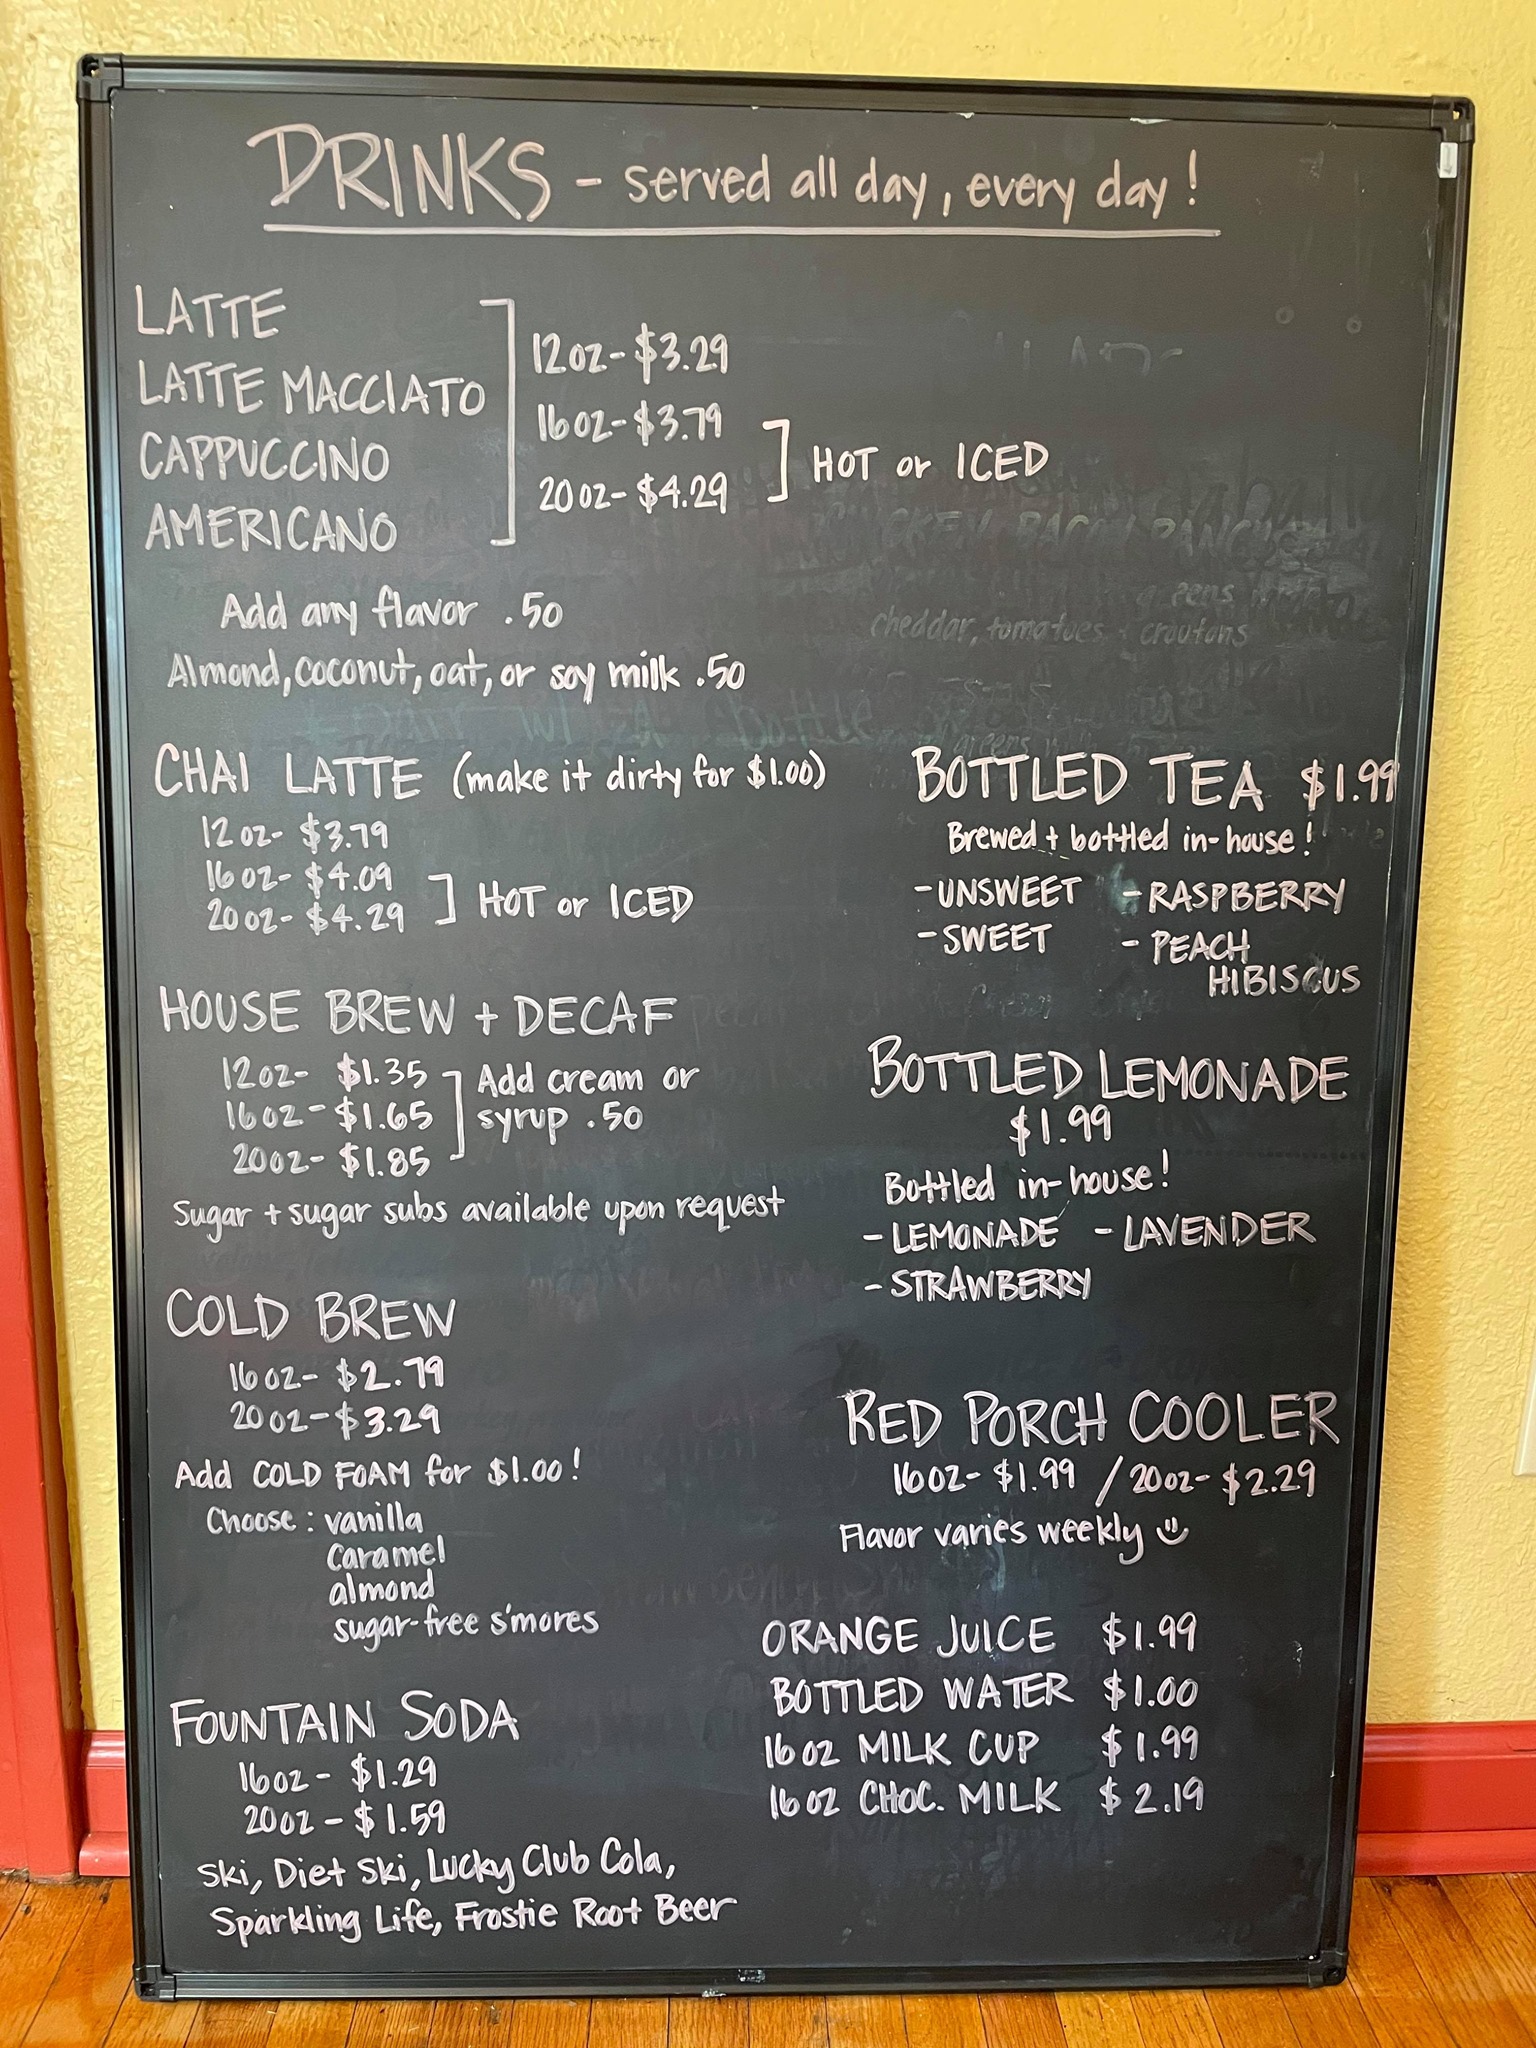 DRINKS - served all day, every day!
LATTE
LATTE MACCIATO
CAPPUCCINO
AMERICANO
12oz- $3.29
16oz- $3.79
20oz- $4.29
HOT or ICED
Add any flavor .50
Almond, coconut, oat, or soy milk .50
CHAI LATTE (make it dirty for $1.00)
12oz- $3.79
16oz- $4.09
20oz- $4.29
HOT or ICED
HOUSE BREW + DECAF
12oz- $1.35
16oz- $1.65
20oz- $1.85
Add cream or
syrup .50
Sugar + sugar subs available upon request
COLD BREW
16oz- $2.79
20oz- $3.29
Add COLD FOAM for $1.00!
Choose: vanilla
caramel
almond
sugar-free s'mores
FOUNTAIN SODA
16oz- $1.29
20oz- $1.59
Ski, Diet Ski, Lucky Club Cola,
Sparkling Life, Frostie Root Beer
cheddar, tomatoes + croutons
BOTTLED TEA $1.99
Brewed + bottled in-house!
- UNSWEET - RASPBERRY
- SWEET - PEACH
HIBISCUS
BOTTLED LEMONADE
$1.99
Bottled in-house!
- LEMONADE - LAVENDER
- STRAWBERRY
RED PORCH COOLER
16oz- $1.99 / 20oz- $2.29
Flavor varies weekly
ORANGE JUICE $1.99
BOTTLED WATER $1.00
16oz MILK CUP $1.99
16oz CHOC. MILK $2.19